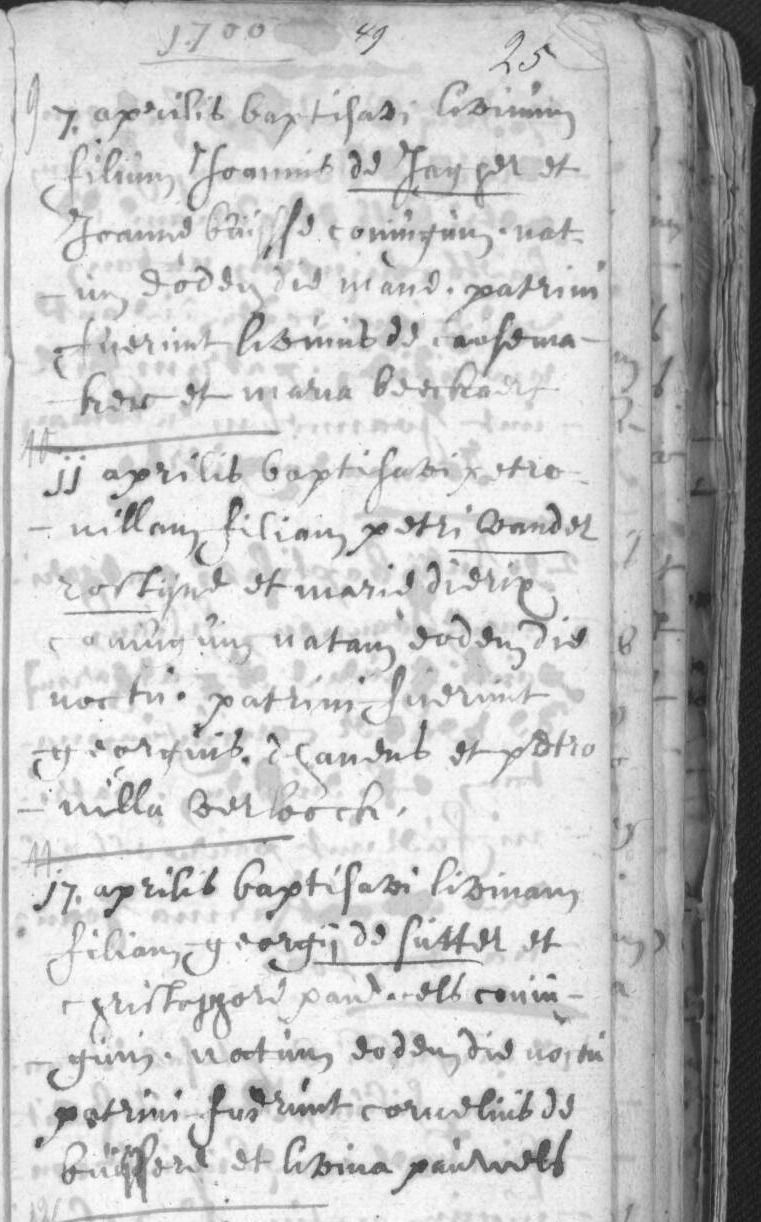 1700 49 25
9
7. aprilis baptisavi livinum
filium Joannis de Jagher et
Joanne buysse coniugum. nat-
um eodem die mane. patrini
fuerunt livinus de causema-
ker et maria beeckaert
10
11 aprilis baptisavi petro-
nillam filiam petri vander
rostyne et marie dierix
coniugum natam eodem die
noctu. patrini fuerunt
georgius et petro
nilla verkock.
11
17. aprilis baptisavi livinam
filiam georgij de sutter et
christophore pauwels coniu-
gum. natam eodem die noctu
patrini fuerunt cornelius de
buyssere et livina pauwels
12